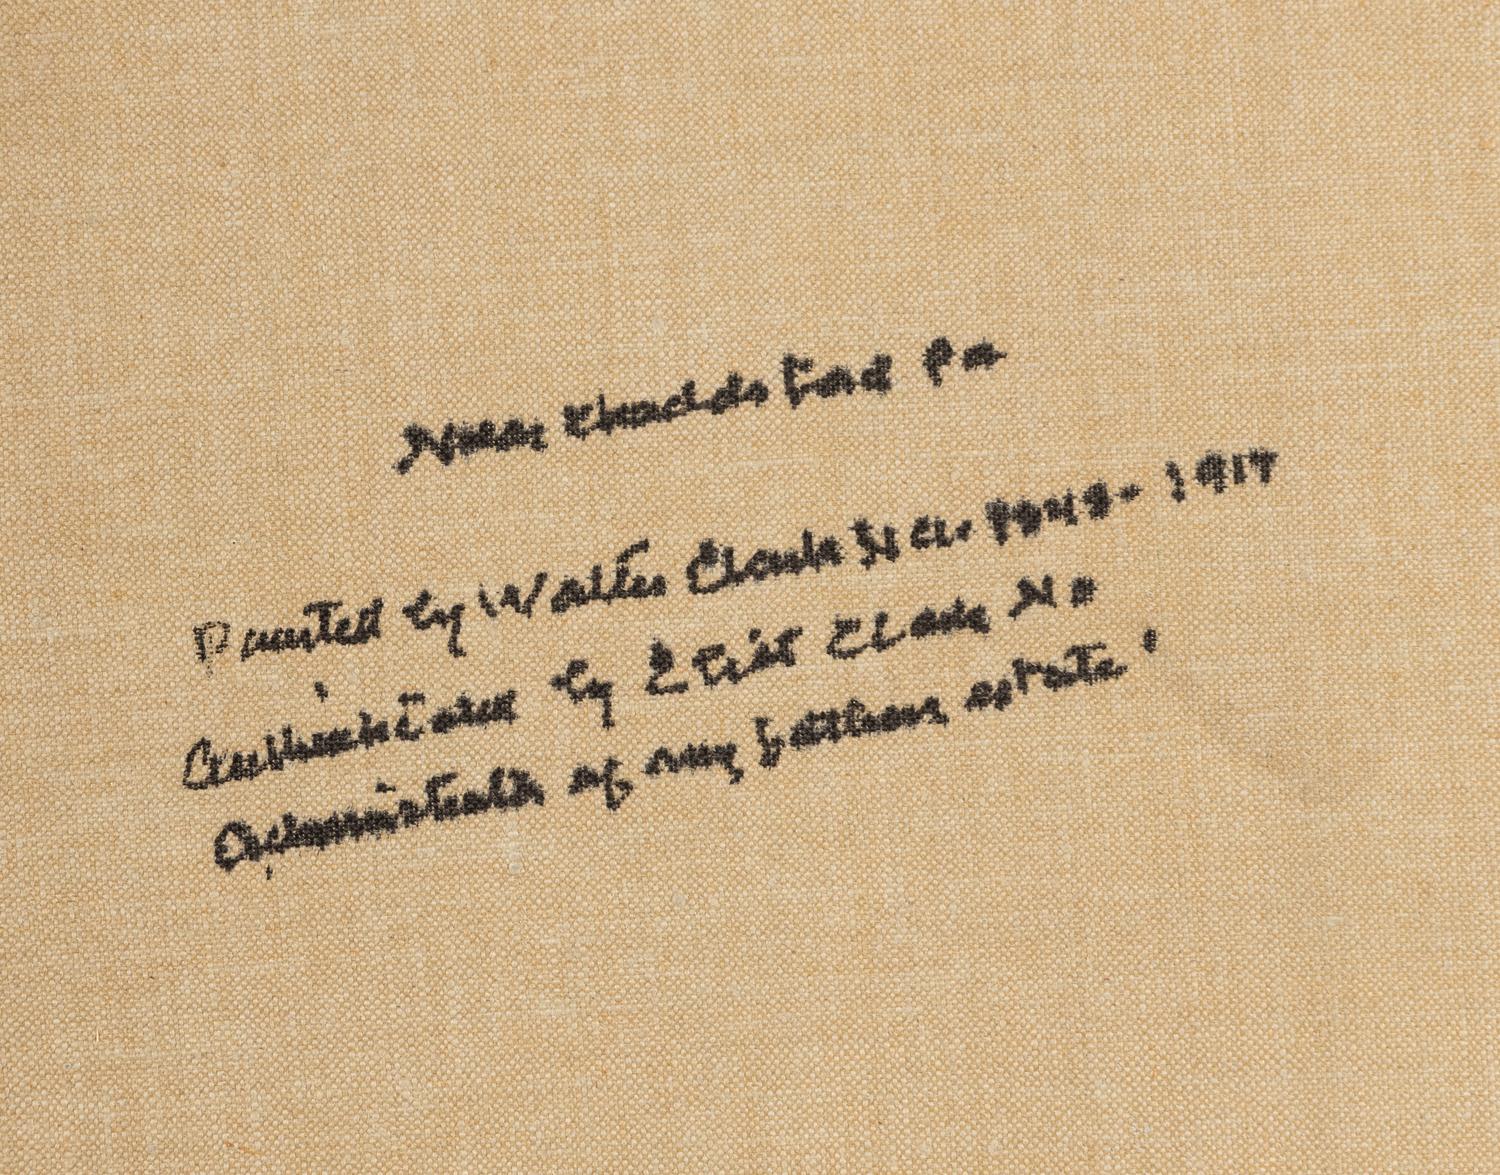 Near Chadds Ford Pa
Painted by Walter Clark N.A. 1848-1917
Authenticated by Eliot Clark NA
Administrator of my fathers estate